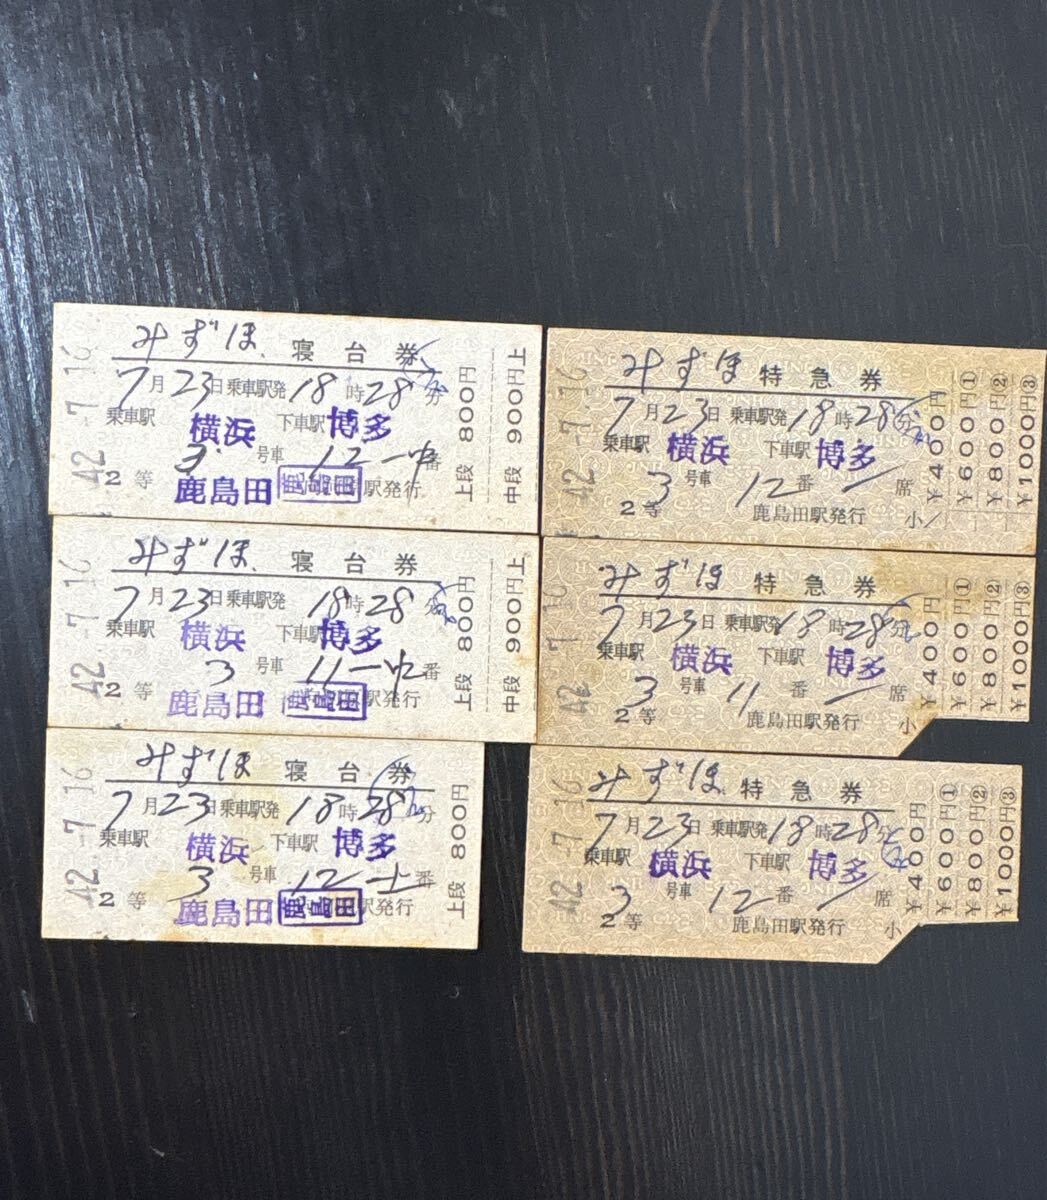 みずほ 寝台券
7月23日乗車駅発18時28分
乗車駅 横浜 下車駅 博多
3 号車 12一中番
2等 鹿島田 鹿島田 駅発行
42.-7.16
上段 800円
中段 900円 上
みずほ 特急券
7月23日 乗車駅発18時28分
乗車駅 横浜 下車駅 博多
3 号車 12番 席
2等 鹿島田駅発行 小
42.-7.16
¥400円
¥600円①
¥800円②
¥1000円③
みずほ 寝台券
7月23日乗車駅発18時28分
乗車駅 横浜 下車駅 博多
3 号車 11一中番
2等 鹿島田 駅発行
42.-7.16
上段 800円
中段 900円 上
みずほ 特急券
7月23日 乗車駅発18時28分
乗車駅 横浜 下車駅 博多
3 号車 11番 席
2等 鹿島田駅発行 小
42.-7.16
¥400円
¥600円①
¥800円②
¥1000円③
みずほ 寝台券
7月23日乗車駅発18時28分
乗車駅 横浜 下車駅 博多
3 号車 12一上番
2等 鹿島田 鹿島田 駅発行
42.-7.16
上段 800円
みずほ 特急券
7月23日 乗車駅発18時28分
乗車駅 横浜 下車駅 博多
3 号車 12番 席
2等 鹿島田駅発行 小
42.-7.16
¥400円
¥600円①
¥800円②
¥1000円③